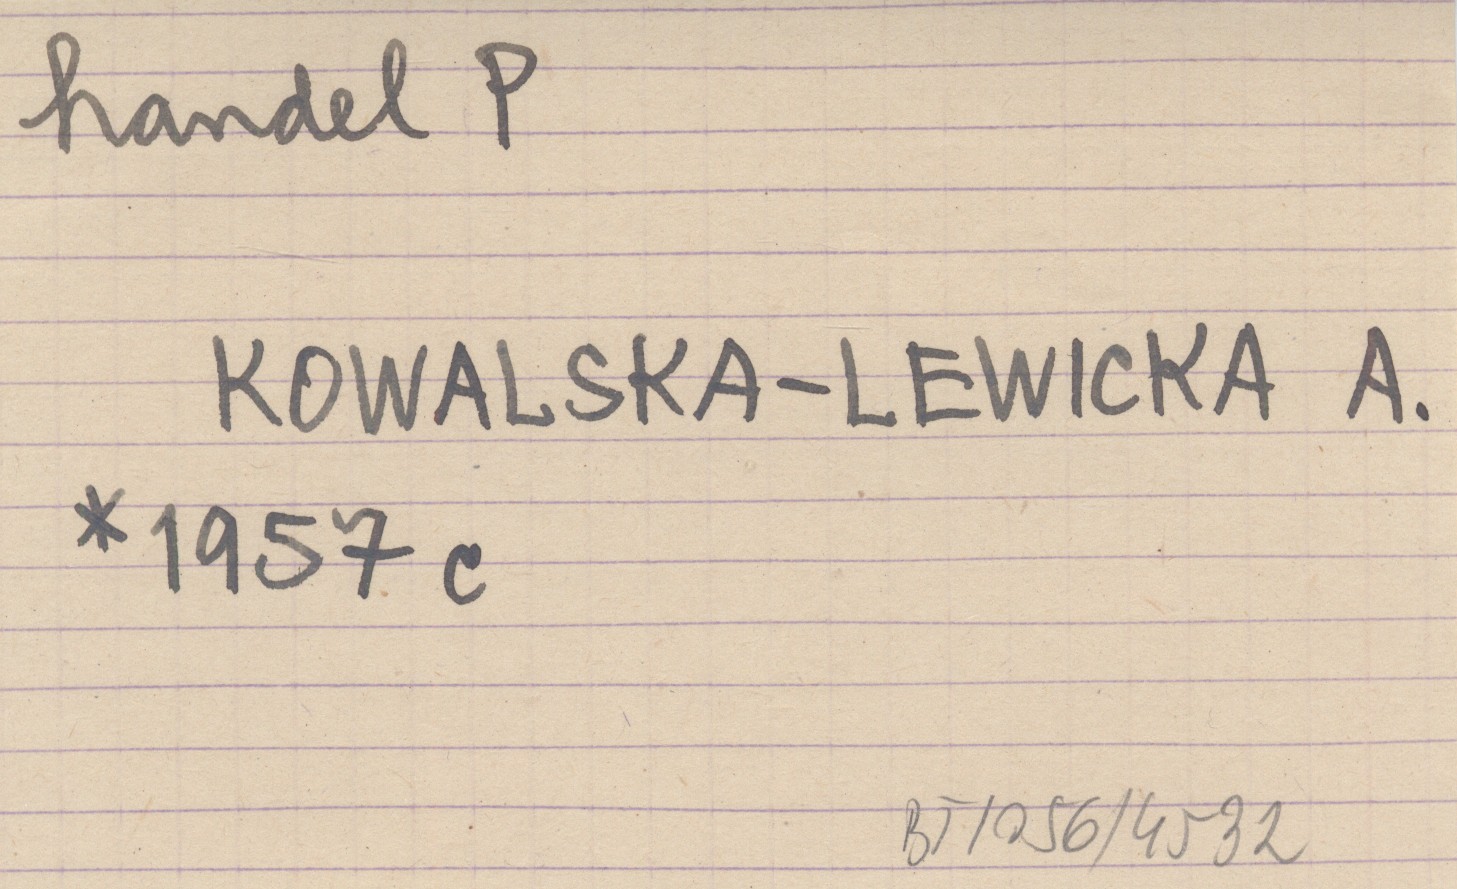 handel P
KOWALSKA-LEWICKA A.
*1957 c
BT/056/4532